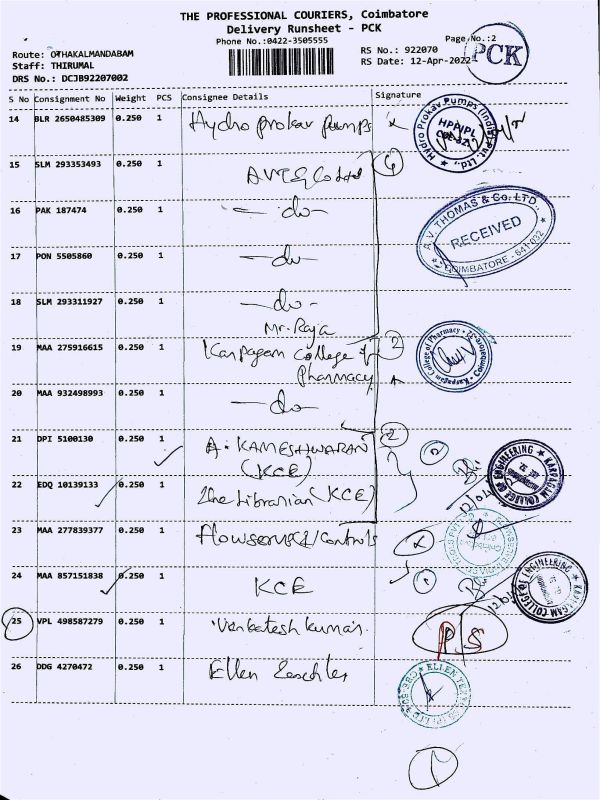 THE PROFESSIONAL COURIERS, Coimbatore
Delivery Runsheet - PCK
Phone No.:0422-3505555
Page No.:2
PCK
Route: OTHAKALMANDABAM
Staff: THIRUMAL
DRS No.: DCJB92207002
RS No.: 922070
RS Date: 12-Apr-2022
S No Consignment No Weight PCS Consignee Details Signature
14 BLR 2650485309 0.250 1 Hydro prokav pumps
Hydro Prokav Pumps (India) Pvt. Ltd.,
15 SLM 293353493 0.250 1 AVT & Co Ltd
16 PAK 187474 0.250 1 -do-
A.V. THOMAS & Co. LTD.,
RECEIVED
COIMBATORE - 641 032
17 PON 5505860 0.250 1 -do-
18 SLM 293311927 0.250 1 -do-
Mr. Raja
19 MAA 275916615 0.250 1 Karpagam College of
Pharmacy
2
Karpagam College of Pharmacy
20 MAA 932498993 0.250 1 -do-
21 DPI 5100130 0.250 1 A. KAMESHWARAN
(KCE)
2
KARPAGAM COLLEGE OF ENGINEERING
22 EDQ 10139133 0.250 1 The Librarian (KCE)
23 MAA 277839377 0.250 1
24 MAA 857151838 0.250 1 KCE
1
KARPAGAM COLLEGE OF ENGINEERING
25 VPL 498587279 0.250 1 Venkatesh kumar.
26 DDG 4270472 0.250 1 Ellen